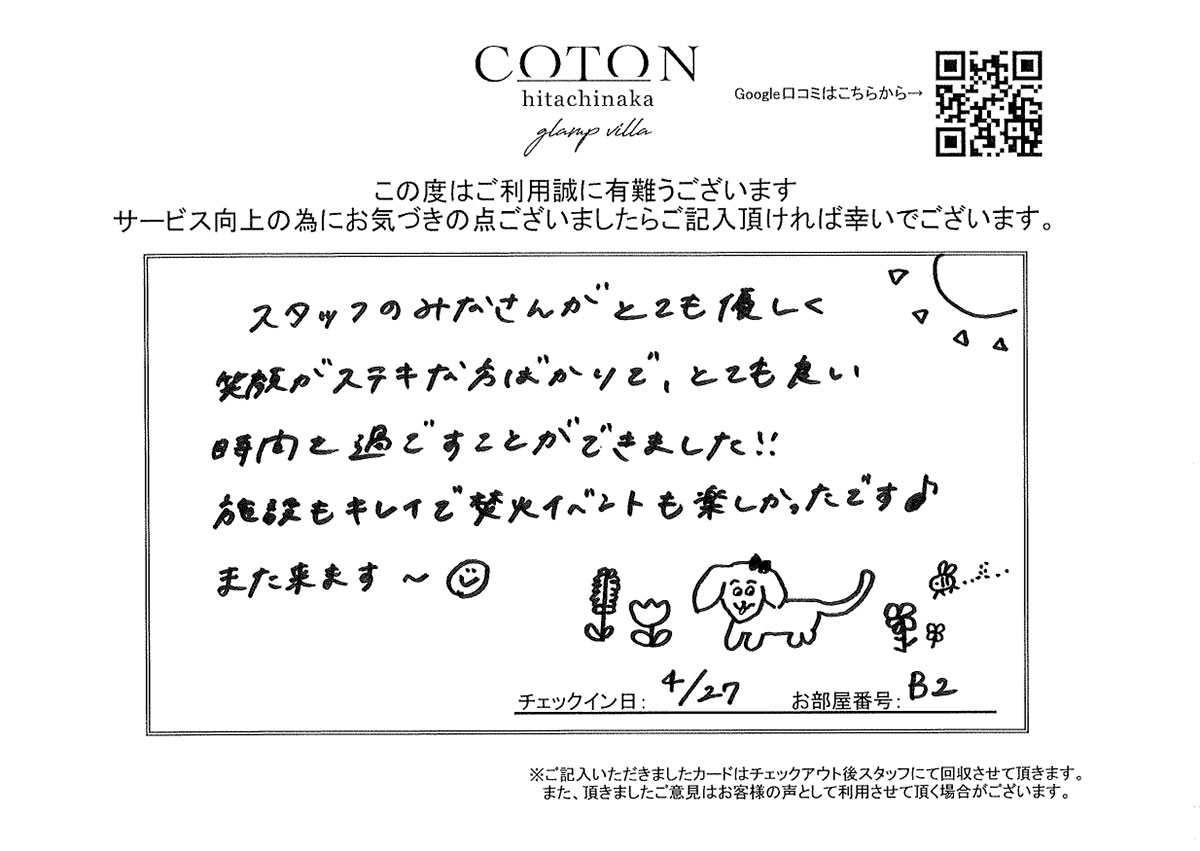 COTON
hitachinaka
glamp villa
Google口コミはこちらから→
この度はご利用誠に有難うございます
サービス向上の為にお気づきの点ございましたらご記入頂ければ幸いでございます。
スタッフのみなさんがとても優しく
笑顔がステキな方ばかりで、とても良い
時間を過ごすことができました!!
施設もキレイで焚火イベントも楽しかったです♪
また来ます〜
チェックイン日: 4/27 お部屋番号: B2
※ご記入いただきましたカードはチェックアウト後スタッフにて回収させて頂きます。
また、頂きましたご意見はお客様の声として利用させて頂く場合がございます。